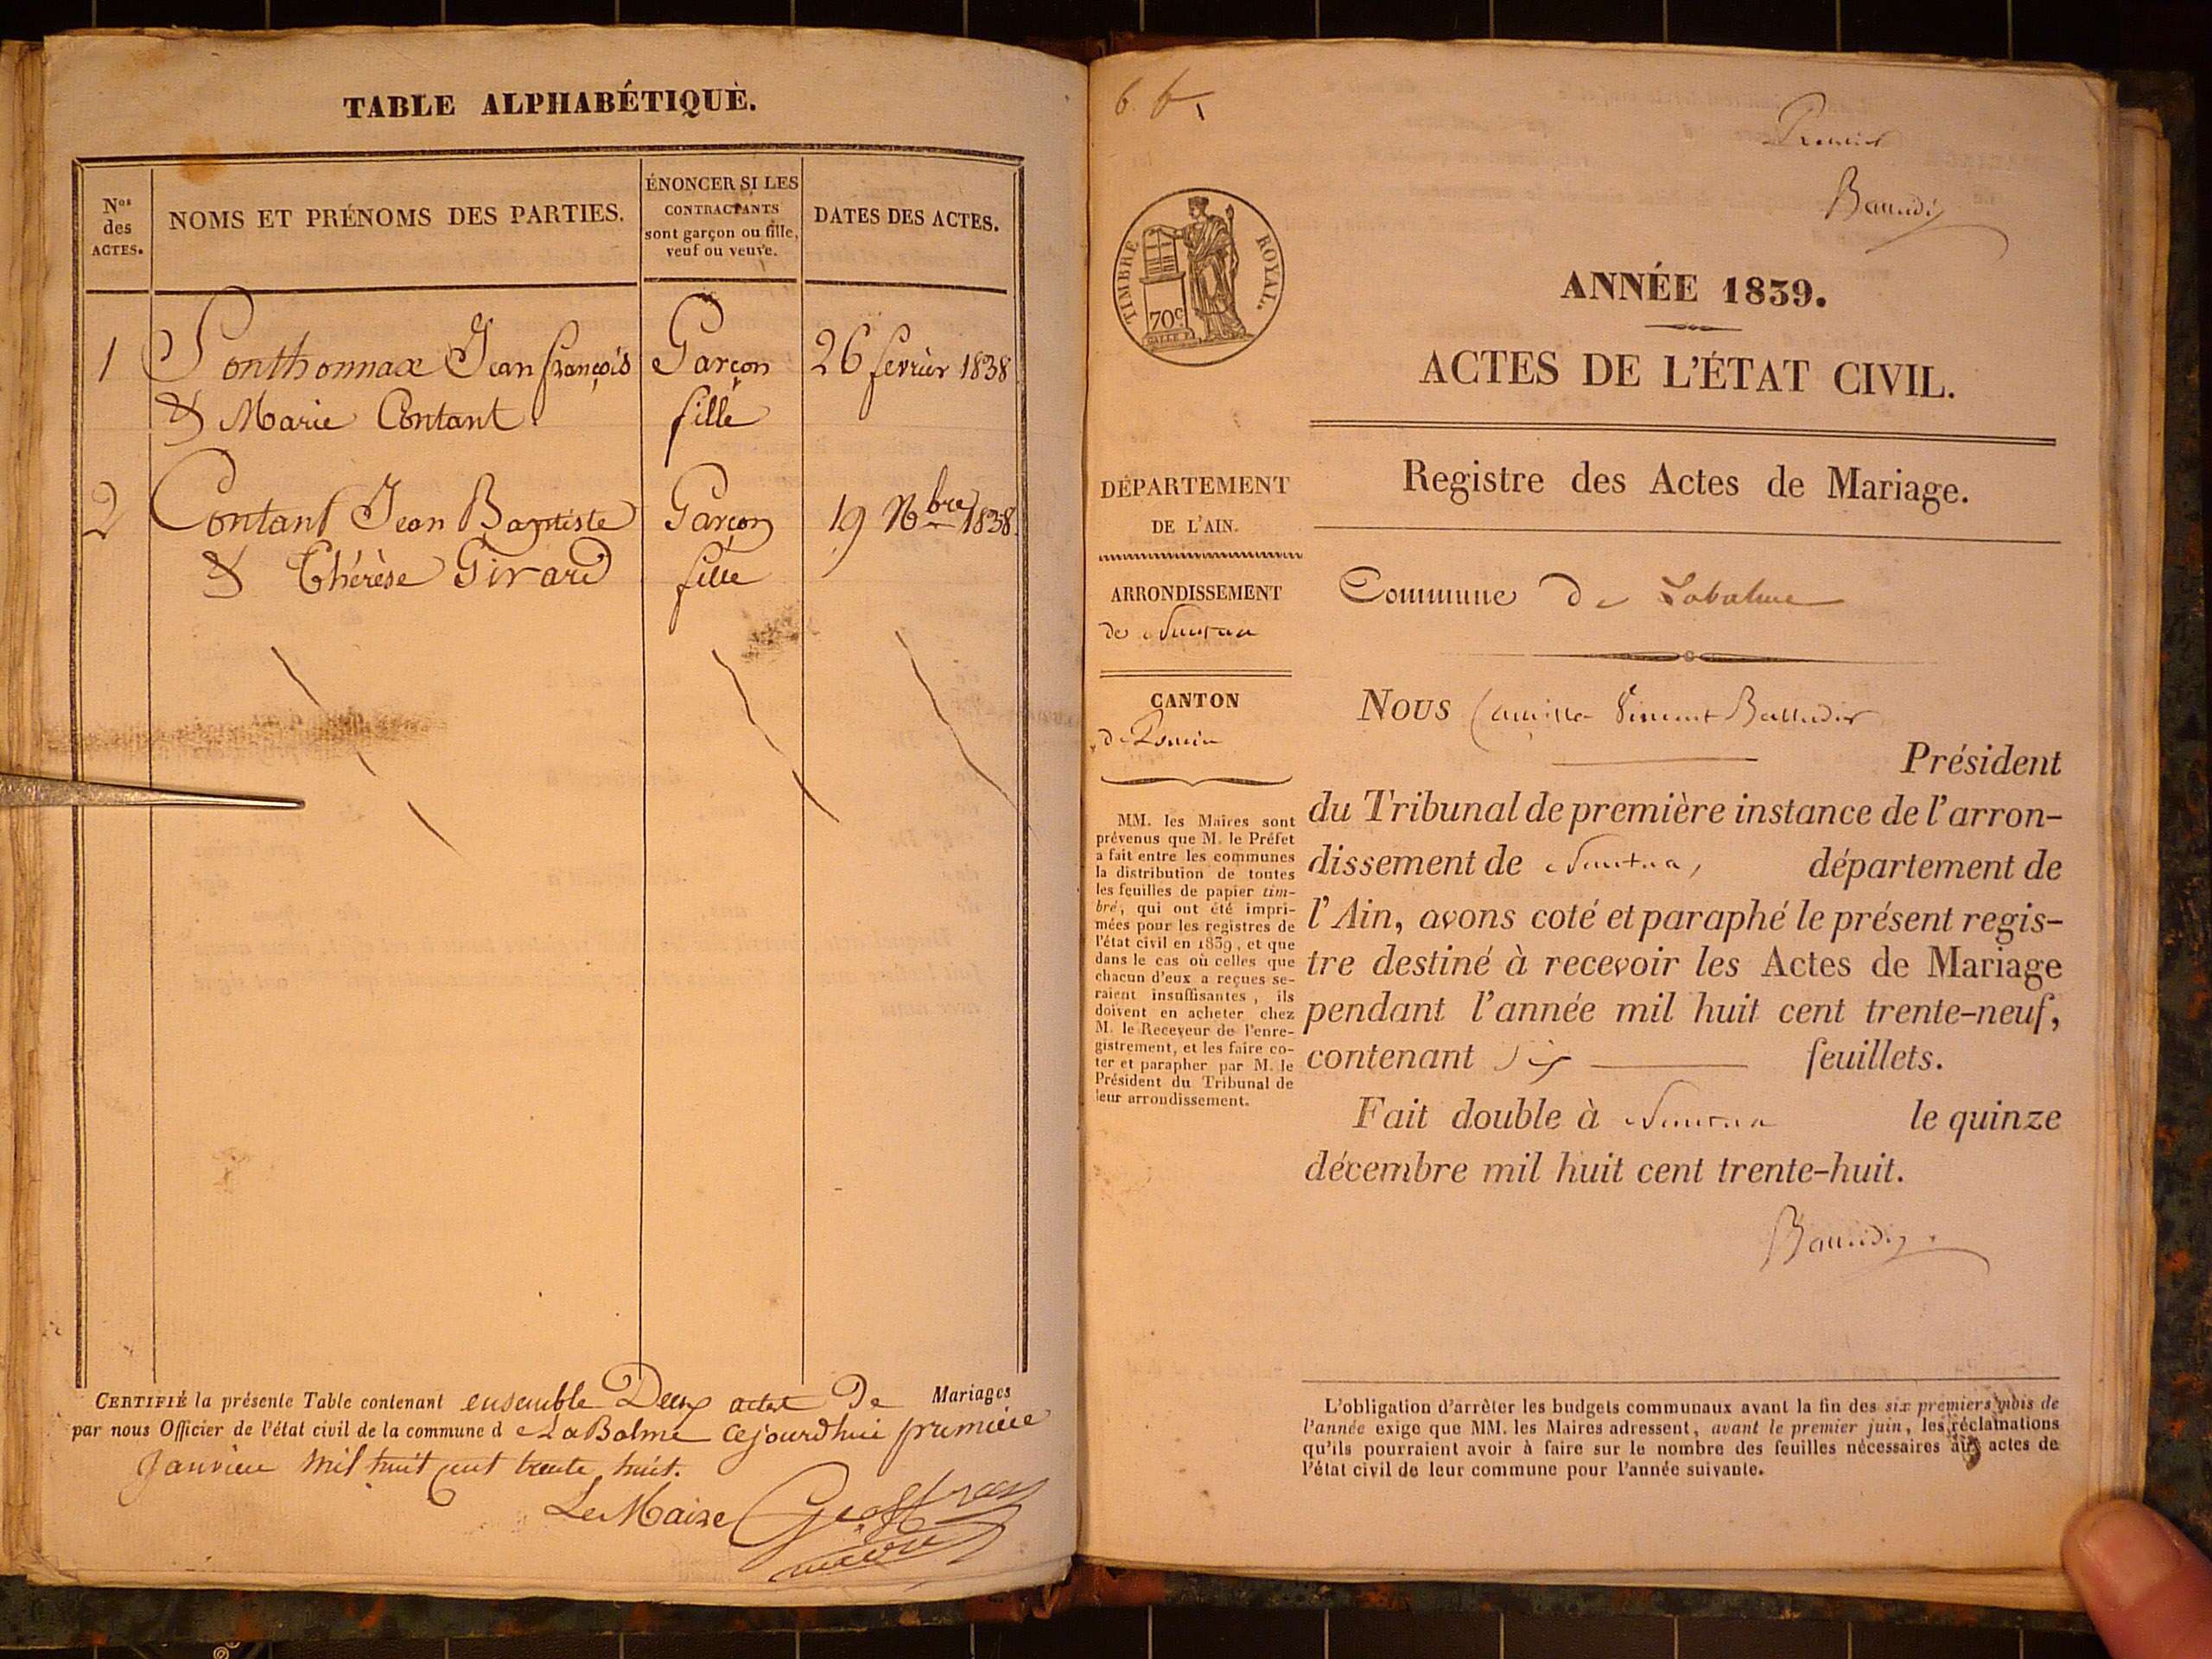 TABLE ALPHABÉTIQUE.
Nos des ACTES.
NOMS ET PRÉNOMS DES PARTIES.
ÉNONCER SI LES
CONTRACTANTS
sont garçon ou fille,
veuf ou veuve.
DATES DES ACTES.
1 Ponthonnax Jean françois Garçon 26 fevrier 1838
& Marie Contant fille
2 Contant Jean Baptiste Garçon 19 Nbre 1838
& Thérèse Girard fille
CERTIFIÉ la présente Table contenant ensemble Deux actes De Mariages
par nous Officier de l'état civil de la commune de LaBalme cejourdhui premiere
Janvier mil huit cent trente huit.
Le Maire Geoffray
Premier
TIMBRE ROYAL.
70c
ANNÉE 1839.
ACTES DE L'ÉTAT CIVIL.
Registre des Actes de Mariage.
DÉPARTEMENT
DE L'AIN.
ARRONDISSEMENT
de Nantua
CANTON
de Poncin
MM. les Maires sont
prévenus que M. le Préfet
a fait entre les communes
la distribution de toutes
les feuilles de papier tim-
bré, qui ont été impri-
mées pour les registres de
l'état civil en 1839, et que
dans le cas où celles que
chacun d'eux a reçues se-
raient insuffisantes, ils
doivent en acheter chez
M. le Receveur de l'enre-
gistrement, et les faire co-
ter et parapher par M. le
Président du Tribunal de
leur arrondissement.
Commune de Labalme
Nous Camille Vincent
Président
du Tribunal de première instance de l'arron-
dissement de Nantua, département de
l'Ain, avons coté et paraphé le présent regis-
tre destiné à recevoir les Actes de Mariage
pendant l'année mil huit cent trente-neuf,
contenant six feuillets.
Fait double à Nantua le quinze
décembre mil huit cent trente-huit.
L'obligation d'arrêter les budgets communaux avant la fin des six premiers mois de
l'année exige que MM. les Maires adressent, avant le premier juin, les réclamations
qu'ils pourraient avoir à faire sur le nombre des feuilles nécessaires aux actes de
l'état civil de leur commune pour l'année suivante.